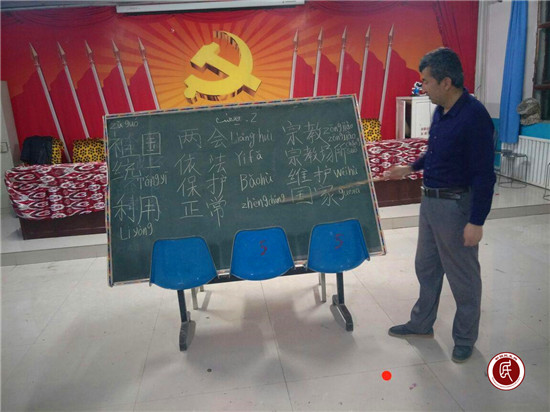 zǔ guó
祖国 两会 liǎng huì 宗教
统一 Tǒngyī 依法 Yīfǎ 宗教场所
保护 Bǎohù 维护 wéihù
利用 正常 zhèngcháng 国家 guójiā
Lìyòng